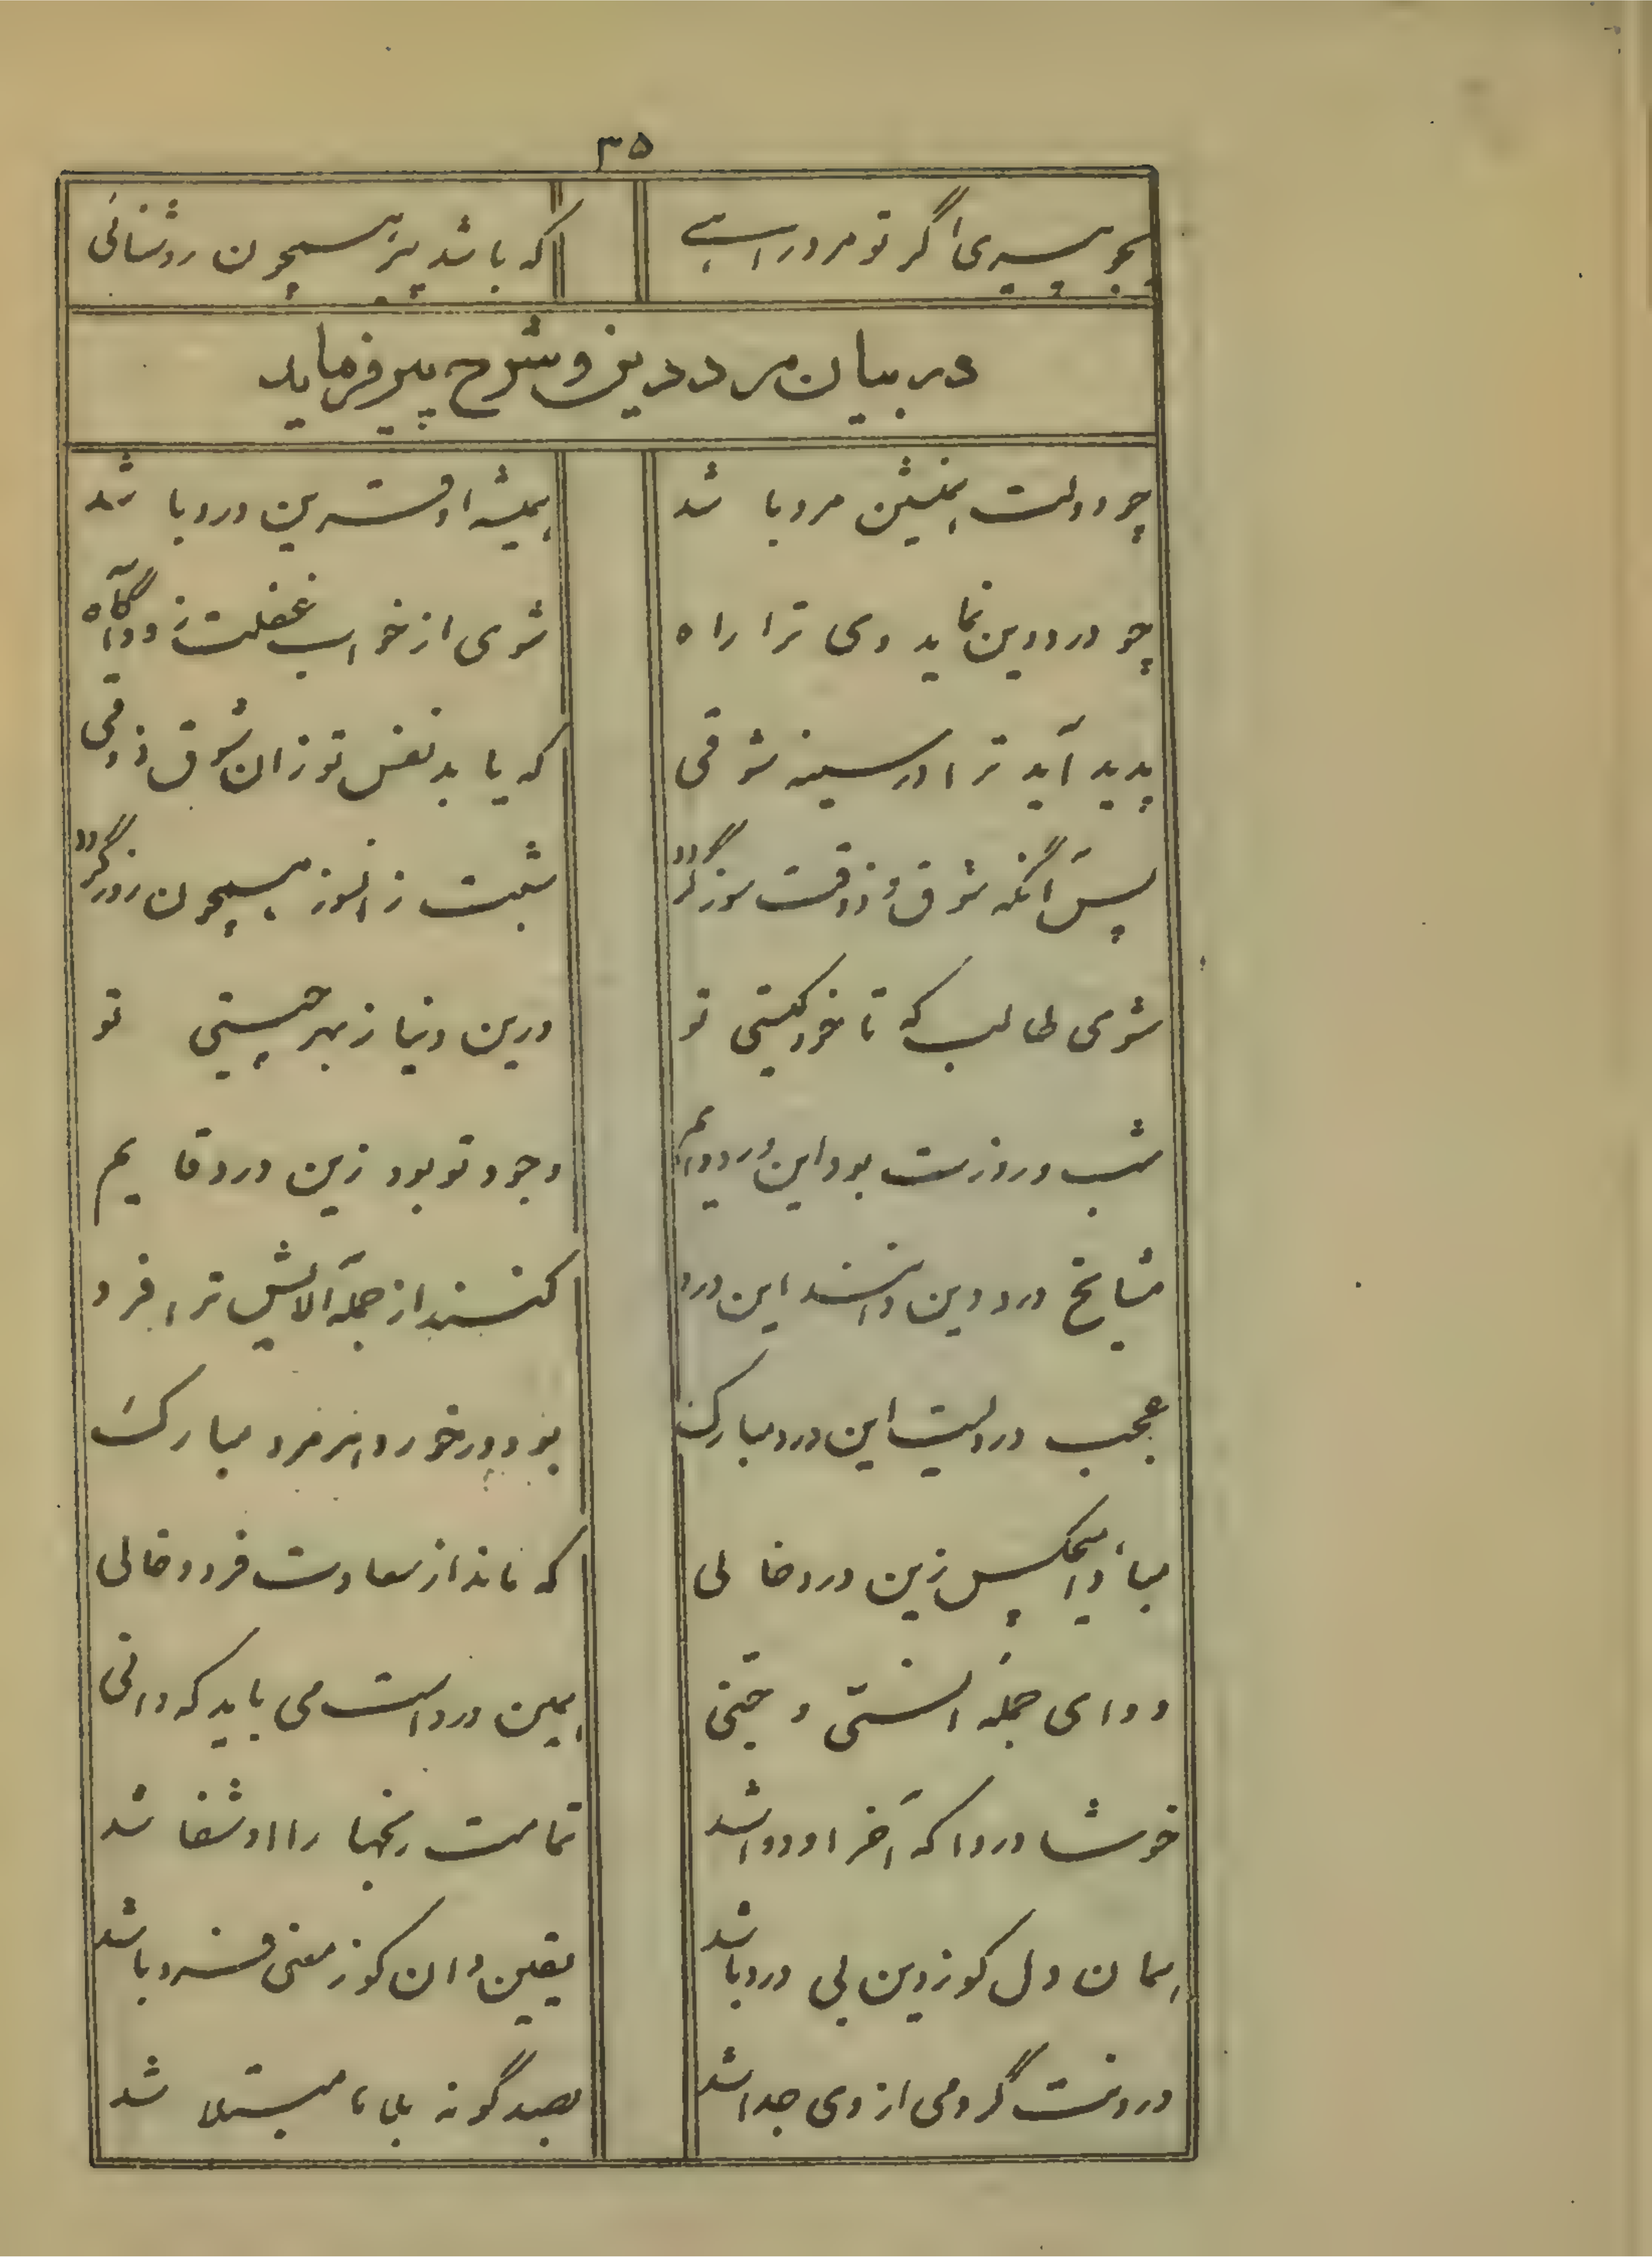 ۳۵
بجو پیری اگر تو مرد راهی که باشد پیر همچون روشنائی
در بیان مرد دین و شرح پیر فرماید
چو دولت همنشین مرد باشد همیشه او قرین درد باشد
چو درد دین نماید وی ترا راه شوی از خواب غفلت زود آگاه
پدید آید ترا در سینه شوقی که یابد نفس تو زان شوق ذوقی
پس آنگه شوق و ذوقت سوز گردد شبت زانسوز همچون روز گردد
شوی طالب که تا خود کیستی تو درین دنیا ز بهر چیستی تو
شب و روزت بود این درد دایم وجود تو بود زین درد قایم
مشایخ درد دین دانند این درد کنند از جمله آلایش ترا فرد
عجب دردیست این درد مبارک بود در خورد هر مرد مبارک
مبادا هیچکس زین درد خالی که ماند از سعادت فرد و خالی
دوای جمله انسی و جنی همین درد است می باید که دانی
خوشا دردا که آخر او دوا شد تمامت رنجها را او شفا شد
همان دل کو ز دین بی درد باشد یقین دان کو ز معنی فرد باشد
درونت گر دمی از وی جدا شد بصد گونه بلاها مبتلا شد